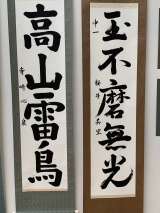 玉不磨無光
中一
高山雷鳥